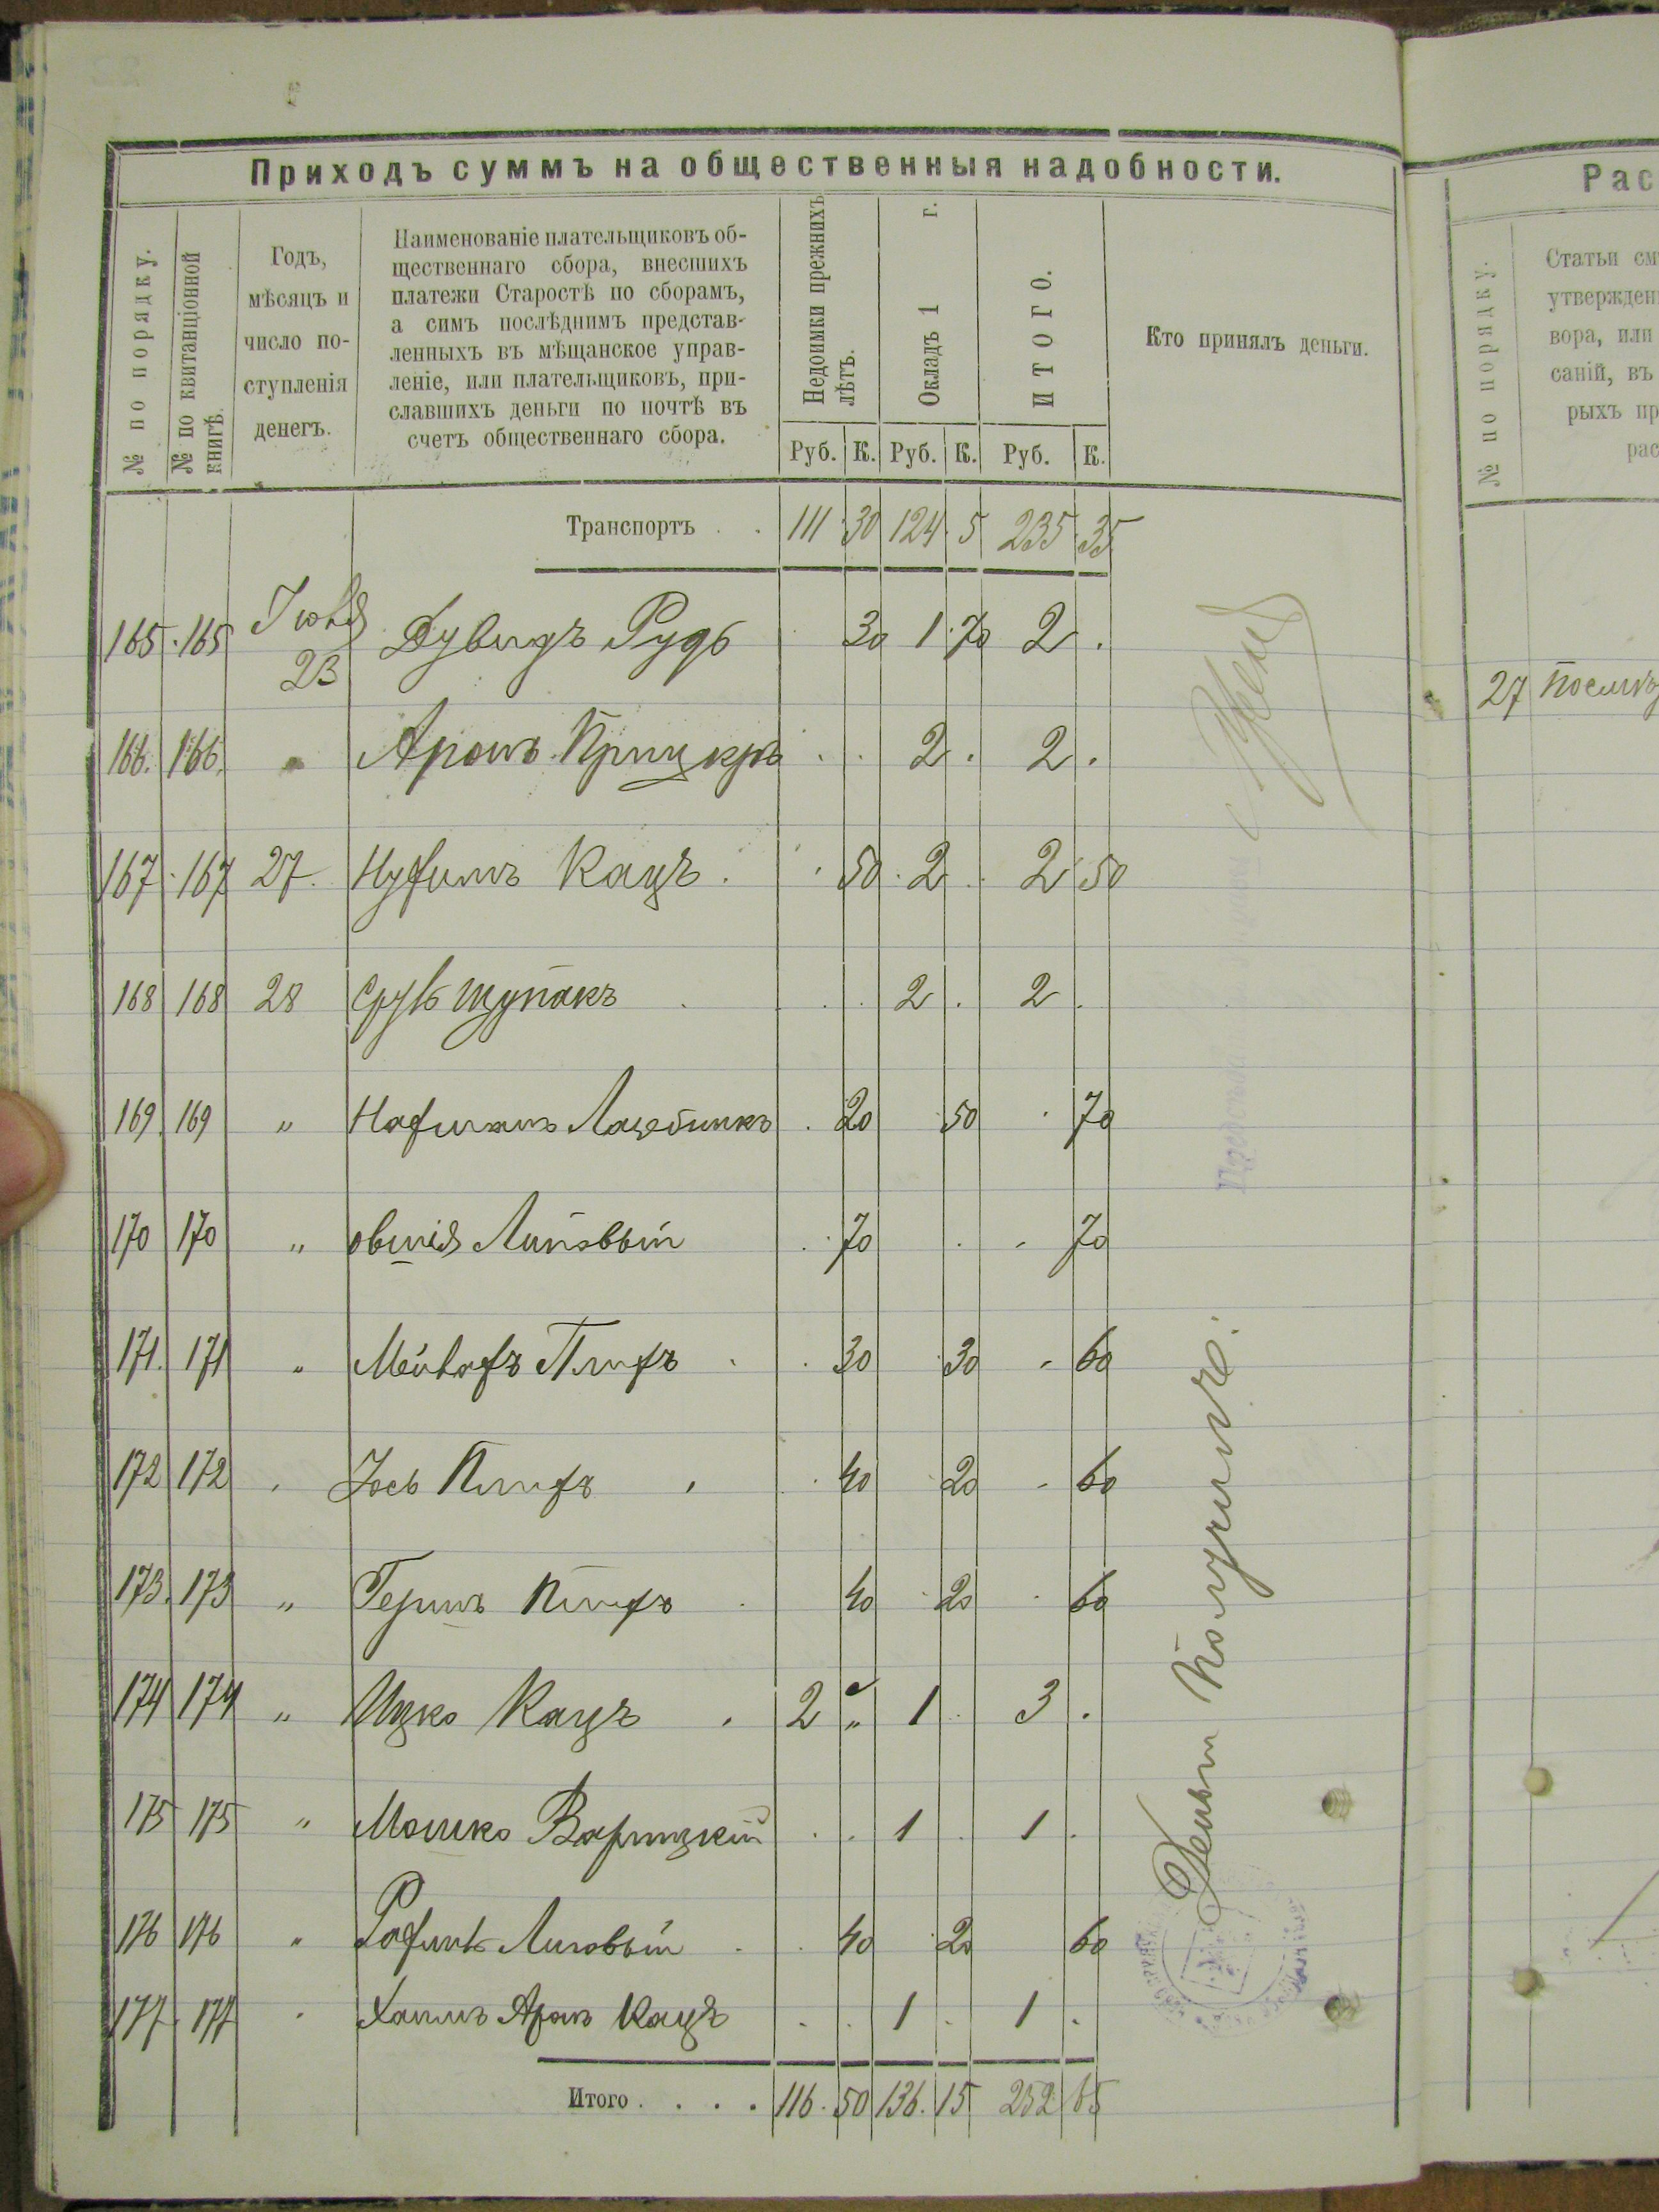 Приходъ суммъ на общественныя надобности.
№ по порядку.
№ по квитанціонной
книгѣ.
Годъ,
мѣсяцъ и
число по-
ступленія
денегъ.
Наименованіе плательщиковъ об-
щественнаго сбора, внесшихъ
платежи Старостѣ по сборамъ,
а симъ послѣднимъ представ-
ленныхъ въ мѣщанское управ-
леніе, или плательщиковъ, при-
славшихъ деньги по почтѣ въ
счетъ общественнаго сбора.
Недоимки прежнихъ
лѣтъ.
Окладъ 1 г.
ИТОГО.
Кто принялъ деньги.
Руб. К. Руб. К. Руб. К.
Транспортъ . . 111 30 124 5 235 35
165 165 Іюля 23 Дувидъ Рудь 30 1 70 2 .
166. 166. " Аронъ Прицкръ . . 2 . 2 .
167 167 27. Нухимъ Кацъ . 50 2 . 2 50
168 168 28 Сруль Щупакъ . 2 . 2 .
169 169 " 20 50 70
170 170 " Овшія Липовый 70 . . 70
171. 171 " 30 30 60
172 172 " Іось 40 20 60
173. 173 " Гершъ 40 20 60
174 174 " Ицко Кацъ . 2 " 1 3 .
175 175 " Мошко Варницкій . . 1 . 1 .
176 176 " 40 20 60
177. 177 " Хаимъ Аронъ Кацъ . . 1 . 1 .
Итого . . . . 116 50 136 15 252 65
Деньги получилъ:
Рас
№ по порядку.
Статьи см
утвержден
вора, или
саній, въ
рыхъ пр
рас
27